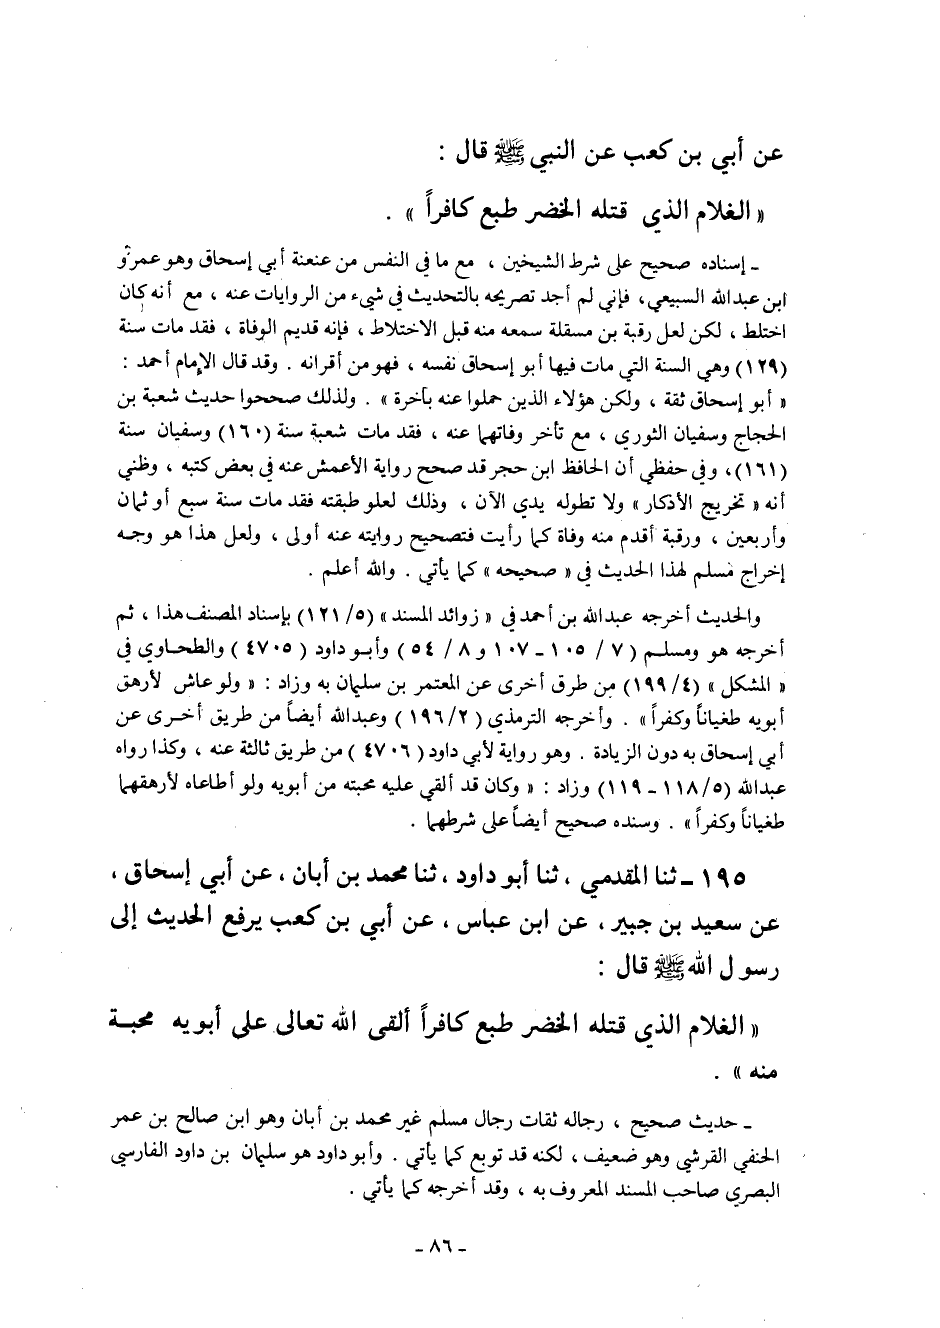 عن أبي بن كعب عن النبي ﷺ قال :
« الغلام الذي قتله الخضر طبع كافراً » .
ـ إسناده صحيح على شرط الشيخين ، مع ما في النفس من عنعنة أبي إسحاق وهو عمرو
ابن عبدالله السبيعي، فإني لم أجد تصريحه بالتحديث في شيء من الروايات عنه ، مع أنه كان
اختلط ، لكن لعل رقبة بن مسقلة سمعه منه قبل الاختلاط ، فإنه قديم الوفاة ، فقد مات سنة
(١٢٩) وهي السنة التي مات فيها أبو إسحاق نفسه ، فهو من أقرانه . وقد قال الإمام أحمد :
« أبو إسحاق ثقة ، ولكن هؤلاء الذين حملوا عنه بآخرة » . ولذلك صححوا حديث شعبة بن
الحجاج وسفيان الثوري ، مع تأخر وفاتهما عنه ، فقد مات شعبة سنة (١٦٠) وسفيان سنة
(١٦١)، وفي حفظي أن الحافظ ابن حجر قد صحح رواية الأعمش عنه في بعض كتبه ، وظني
أنه « تخريج الأذكار » ولا تطوله يدي الآن ، وذلك لعلو طبقته فقد مات سنة سبع أو ثمان
وأربعين ، ورقبة أقدم منه وفاة كما رأيت فتصحيح روايته عنه أولى ، ولعل هذا هو وجه
إخراج مسلم لهذا الحديث في « صحيحه » كما يأتي . والله أعلم .
والحديث أخرجه عبدالله بن أحمد في « زوائد المسند » (٥/ ١٢١) بإسناد المصنف هذا ، ثم
أخرجه هو ومسلم (٧ / ١٠٥ ـ ١٠٧ و ٨ / ٥٤) وأبو داود (٤٧٠٥ ) والطحاوي في
« المشكل » (٤/ ١٩٩) من طرق أخرى عن المعتمر بن سليمان به وزاد : « ولو عاش لأرهق
أبويه طغياناً وكفراً » . وأخرجه الترمذي (٢/ ١٩٦) وعبدالله أيضاً من طريق أخرى عن
أبي إسحاق به دون الزيادة . وهو رواية لأبي داود ( ٤٧٠٦ ) من طريق ثالثة عنه ، وكذا رواه
عبدالله (٥/ ١١٨ ـ ١١٩) وزاد : « وكان قد ألقي عليه محبته من أبويه ولو أطاعاه لأرهقهما
طغياناً وكفراً » . وسنده صحيح أيضاً على شرطهما .
١٩٥ ـ ثنا المقدمي ، ثنا أبو داود ، ثنا محمد بن أبان ، عن أبي إسحاق ،
عن سعيد بن جبير ، عن ابن عباس ، عن أبي بن كعب يرفع الحديث إلى
رسول الله ﷺ قال :
« الغلام الذي قتله الخضر طبع كافراً ألقى الله تعالى على أبويه محبة
منه » .
ـ حديث صحيح ، رجاله ثقات رجال مسلم غير محمد بن أبان وهو ابن صالح بن عمر
الحنفي القرشي وهو ضعيف ، لكنه قد توبع كما يأتي . وأبو داود هو سليمان بن داود الفارسي
البصري صاحب المسند المعروف به ، وقد أخرجه كما يأتي .
ـ ٨٦ ـ